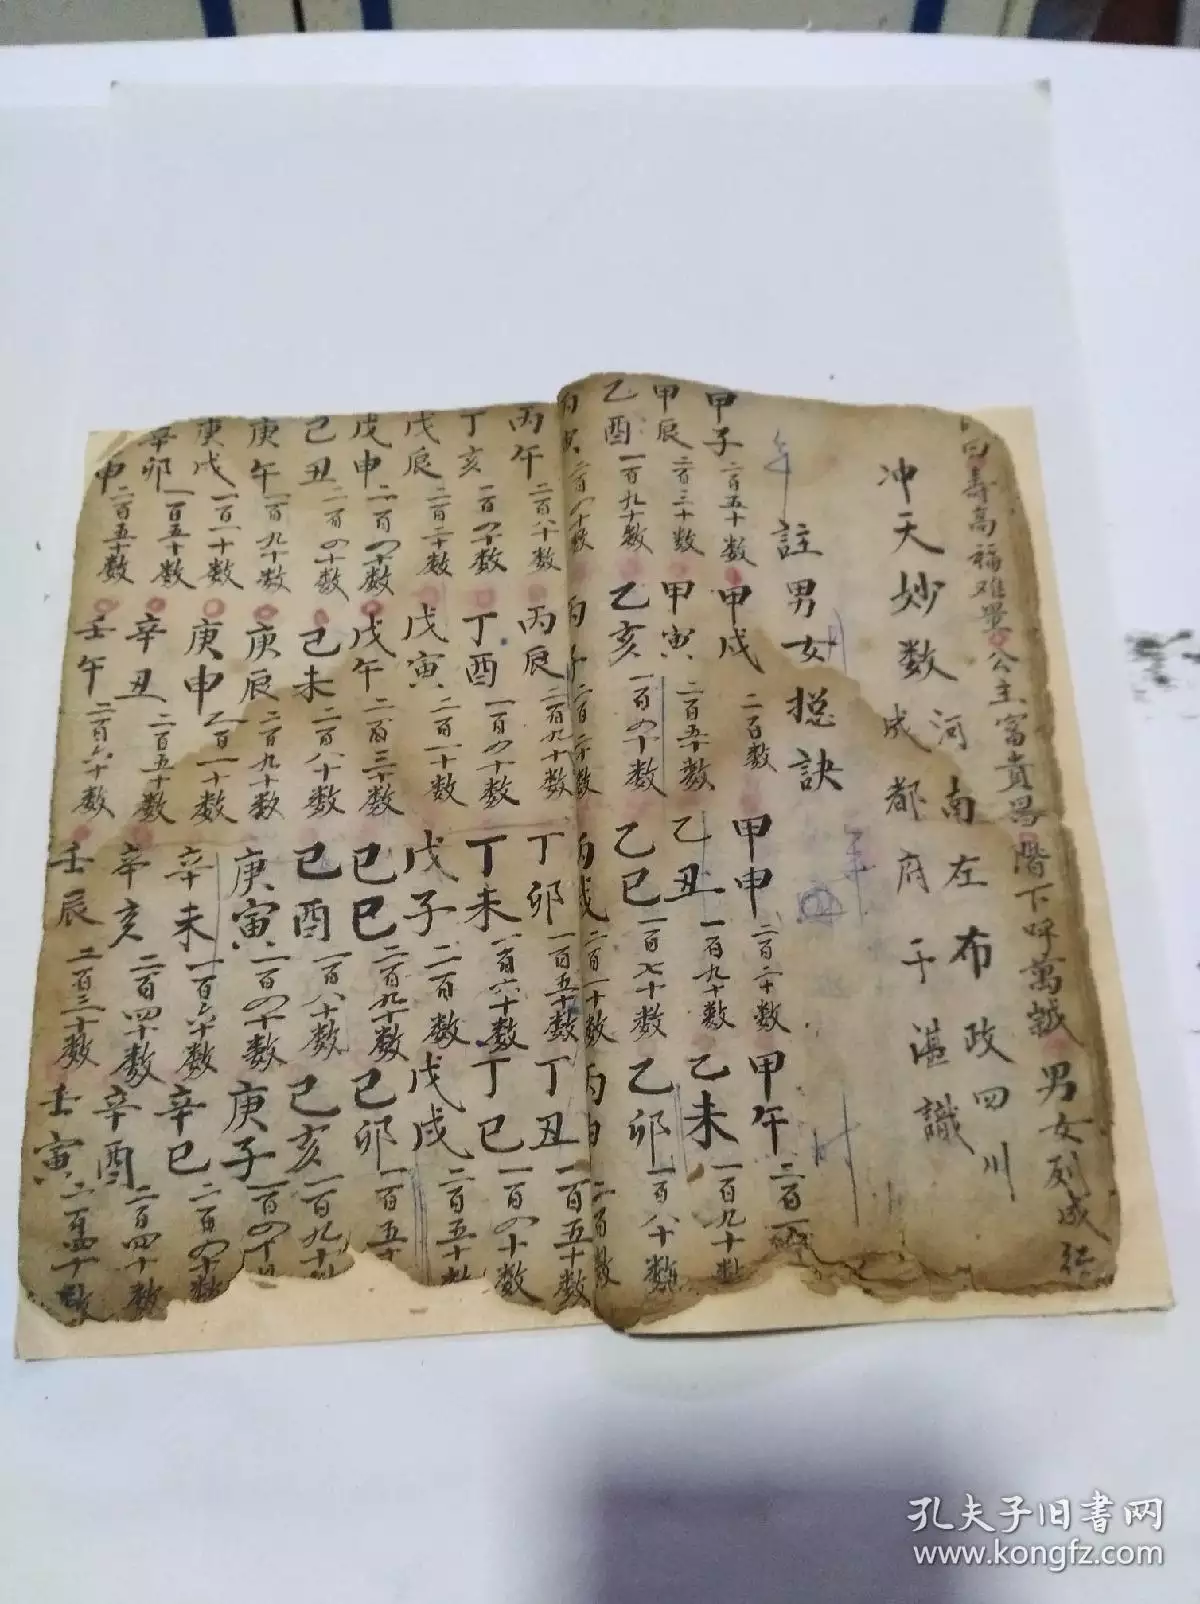 曰寿高福难量公主富貴男階下呼萬歲男女列成行
冲天妙数
河南左布政四川
成都府于湛識
年註男女摠訣
甲子二百五十数 甲戌二百数 甲申二百二十数 甲午二百一
甲辰二百三十数 甲寅二百五十数 乙丑一百九十数 乙未一百九十数
乙酉一百九十数 乙亥一百四十数 乙巳一百七十数 乙卯一百八十数
丙寅二百八十数 丙子二百二十数 丙戌二百一十数 丙申二百数
丙午二百八十数 丙辰二百九十数 丁卯一百五十数 丁丑一百五十数
丁亥二百四十数 丁酉一百四十数 丁未一百六十数 丁巳一百四十数
戊辰二百二十数 戊寅二百一十数 戊子二百数 戊戌二百五十数
戊申二百四十数 戊午二百三十数 己巳二百九十数 己卯一百五十
己丑二百四十数 己未二百八十数 己酉一百八十数 己亥一百九十数
庚午一百九十数 庚辰二百九十数 庚寅一百四十数 庚子一百四十数
庚戌一百一十数 庚申二百一十数 辛未一百六十数 辛巳二百四十数
辛卯一百五十数 辛丑二百五十数 辛亥二百四十数 辛酉二百四十数
申二百五十数 壬午二百六十数 壬辰二百三十数 壬寅二百四十数
孔夫子旧书网
www.kongfz.com